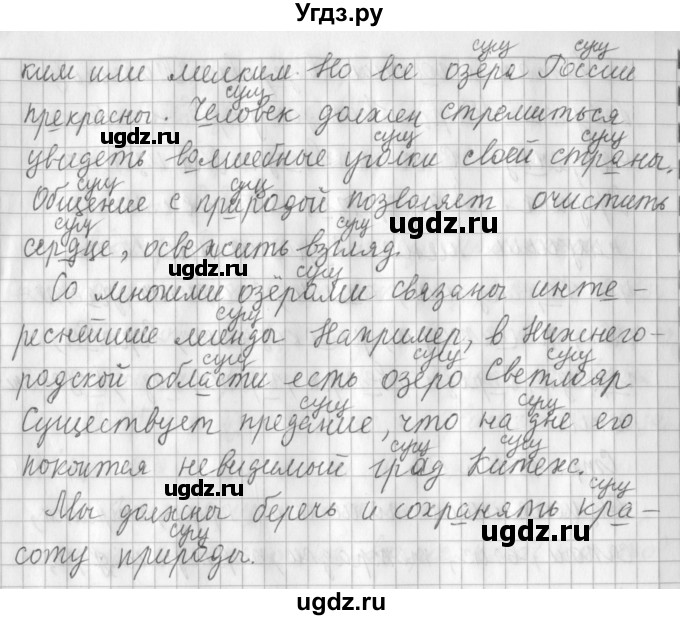 Угдз.ру
сущ сущ
ким или мелким. Но все озера России
сущ
прекрасны. Человек должен стремиться
ugdz.ru ugdz.ru
сущ сущ
увидеть волшебные уголки своей страны.
сущ сущ
Общение с природой позволяет очистить
сущ сущ
сердце, освежить взгляд.
ugdz.ru ugdz.ru
сущ
Со многими озёрами связаны инте-
сущ
реснейшие легенды. Например, в Нижнего-
сущ сущ сущ
родской области есть озеро Светлояр
ugdz.ru ugdz.ru
сущ сущ
Существует предание, что на дне его
сущ сущ
покоится невидимый град Китеж.
ugdz.ru
сущ
Мы должны беречь и сохранять кра-
ugdz.ru ugdz.ru
сущ
соту природы.
ugdz.ru